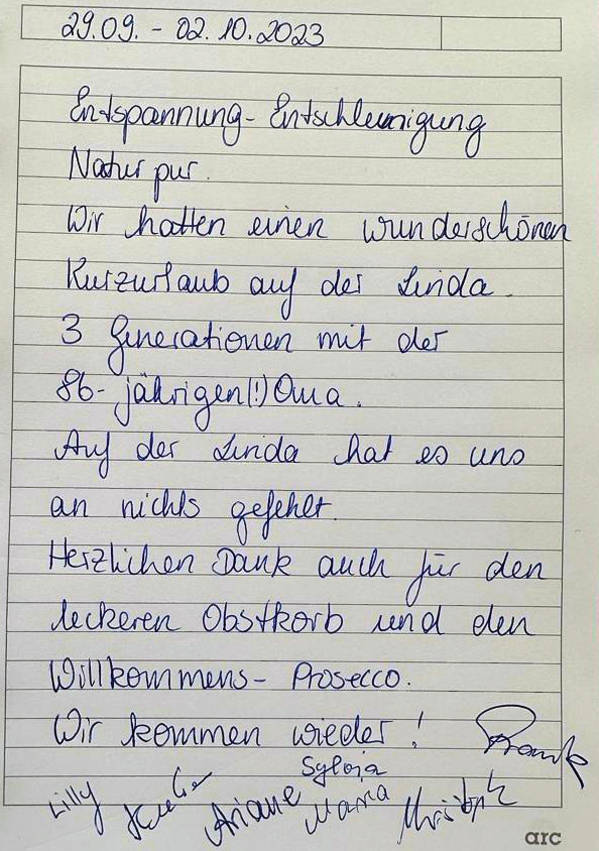 29.09. - 02.10.2023
Entspannung - Entschleunigung
Natur pur.
Wir hatten einen wunderschönen
Kurzurlaub auf der Linda.
3 Generationen mit der
86-jährigen(!) Oma.
Auf der Linda hat es uns
an nichts gefehlt.
Herzlichen Dank auch für den
leckeren Obstkorb und den
Willkommens - Prosecco.
Wir kommen wieder! Frank
Sylvia
Lilly Ariane Maria Christoph
arc